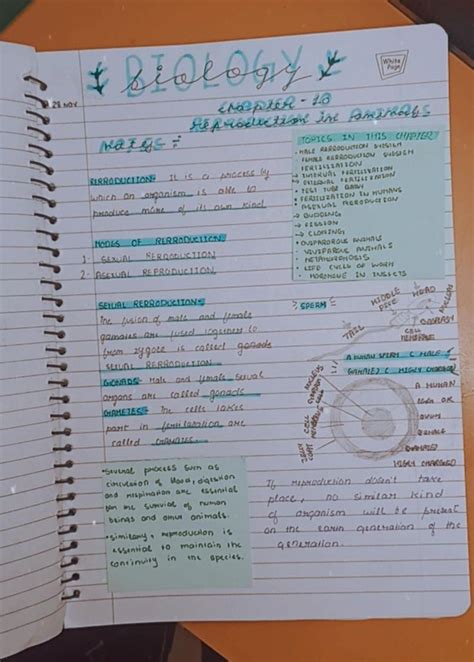 BIOLOGY
biology
White Page
28 NOV
CHAPTER - 10
Reproduction In Animals
NOTES :
TOPICS IN THIS CHAPTER
• MALE REPRODUCTION SYSTEM
• FEMALE REPRODUCTION SYSTEM
FERTILIZATION
→ INTERNAL FERTILIZATION
→ EXTERNAL FERTILIZATION
• TEST TUBE BABY
• FERTILIZATION IN HUMANS
• ASEXUAL REPRODUCTION
→ BUDDING
→ FISSION
→ CLONING
• OVIPAROUS ANIMALS
• VIVIPAROUS ANIMALS
• METAMORPHOSIS
• LIFE CYCLE OF
• HORMONE IN INSECTS
REPRODUCTION: It is a process by
which an organism is able to
produce more of its own kind
MODES OF REPRODUCTION
1- SEXUAL REPRODUCTION
2- ASEXUAL REPRODUCTION
SEXUAL REPRODUCTION:
The fusion of male and female
gametes are fused together to
form zygote is called gonads
SEXUAL REPRODUCTION
GONADS: Male and female sexual
organs are called gonads
GAMETES: The cells takes
part in fertilization are
called GAMETES.
SPERM
TAIL
MIDDLE
PIECE
HEAD
NUCLEUS
CELL
MEMBRANE
A HUMAN SPERM ( MALE
GAMETE) ( HIGHLY ENLARGED)
NUCLEUS
CELL MEMBRANE
JELLY
COAT
A HUMAN
OVUM
FEMALE
GAMETE)
HIGHLY ENLARGED
• Several process such as
circulation of blood, digestion
and respiration are essential
for the survival of human
beings and other animals.
• similarly, reproduction is
essential to maintain the
continuity in the species.
If reproduction doesn't take
place, no similar kind
of organism will be present
on the earth generation of the
generation.